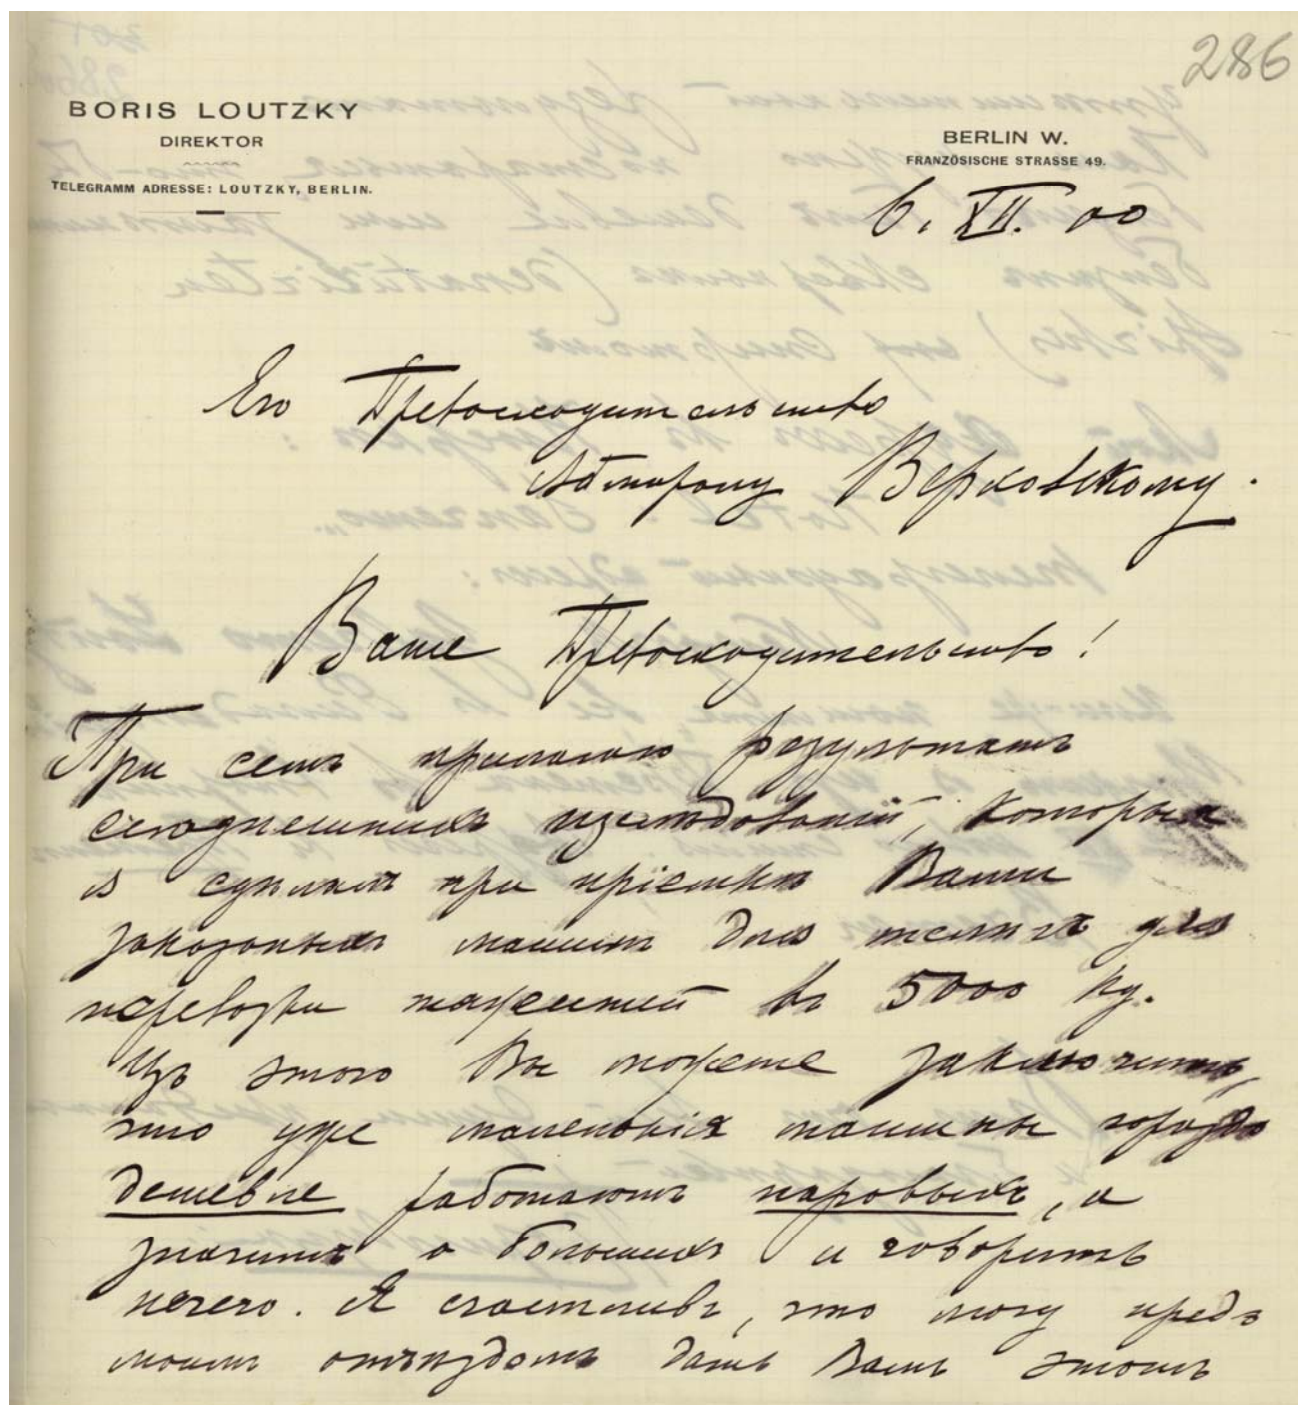 286
BORIS LOUTZKY
DIREKTOR
TELEGRAMM ADRESSE: LOUTZKY, BERLIN.
BERLIN W.
FRANZÖSISCHE STRASSE 49.
6. XII. 00
Его Превосходительство
Адмиралу Верховскому.
Ваше Превосходительство!
При семъ прилагаю результатъ
сегоднешнихъ изслѣдованій, которыя
я сдѣлалъ при пріемкѣ Вами
заказаныхъ машинъ для телегъ для
перевозки тяжестей въ 5000 kg.
Изъ этого Вы можете заключить,
что уже маленькія машины гораздо
дешевле работаютъ паровыхъ, а
значитъ о большихъ и говорить
нечего. Я счастливъ, что могу предъ
моимъ отъѣздомъ дать Вамъ этотъ